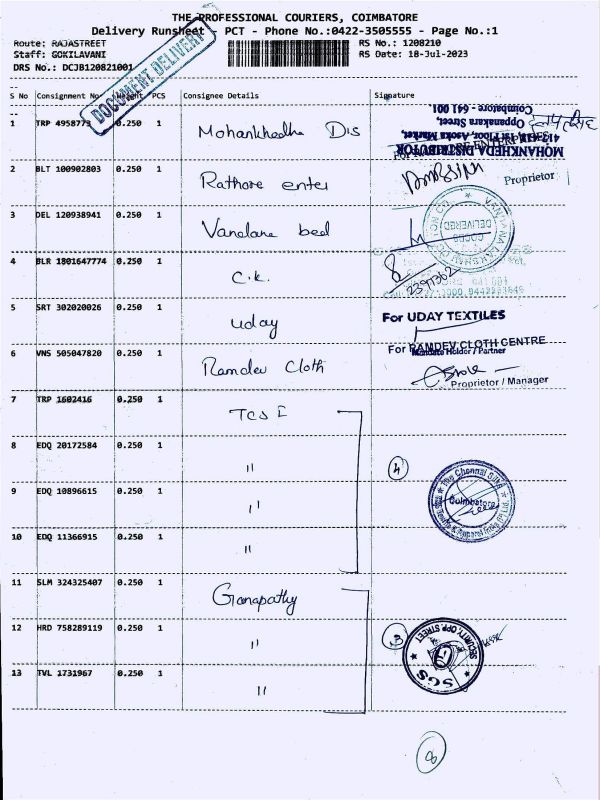 THE PROFESSIONAL COURIERS, COIMBATORE
Delivery Runsheet - PCT - Phone No.:0422-3505555 - Page No.:1
Route: RAJASTREET
RS No.: 1208210
Staff: GOKILAVANI
RS Date: 18-Jul-2023
DRS No.: DCJB120821001
DOCUMENT DELIVERY
S No Consignment No Weight PCS Consignee Details Signature
1 TRP 4958773 0.250 1 Mohankhedha Dis
MOHANKHEDA DISTRIBUTOR
1st Floor, Asoka Market,
Oppanakara Street,
Coimbatore - 641 001.
2 BLT 100902803 0.250 1 Rathore enter
Proprietor
3 DEL 120938941 0.250 1 Vandana bed
GOODS DELIVERED
4 BLR 1801647774 0.250 1 C.K.
5 SRT 302020026 0.250 1 uday
For UDAY TEXTILES
6 VNS 505047820 0.250 1 Ramdev Cloth
For RAMDEV CLOTH CENTRE
Mandate Holder / Partner
Proprietor / Manager
7 TRP 1602416 0.250 1
8 EDQ 20172584 0.250 1 "
4
The Chennai Silks
Coimbatore
9 EDQ 10896615 0.250 1 "
10 EDQ 11366915 0.250 1 "
11 SLM 324325407 0.250 1 Ganapathy
12 HRD 758289119 0.250 1 "
3
SECURITY OPP STREET
SGS
13 TVL 1731967 0.250 1 "
8